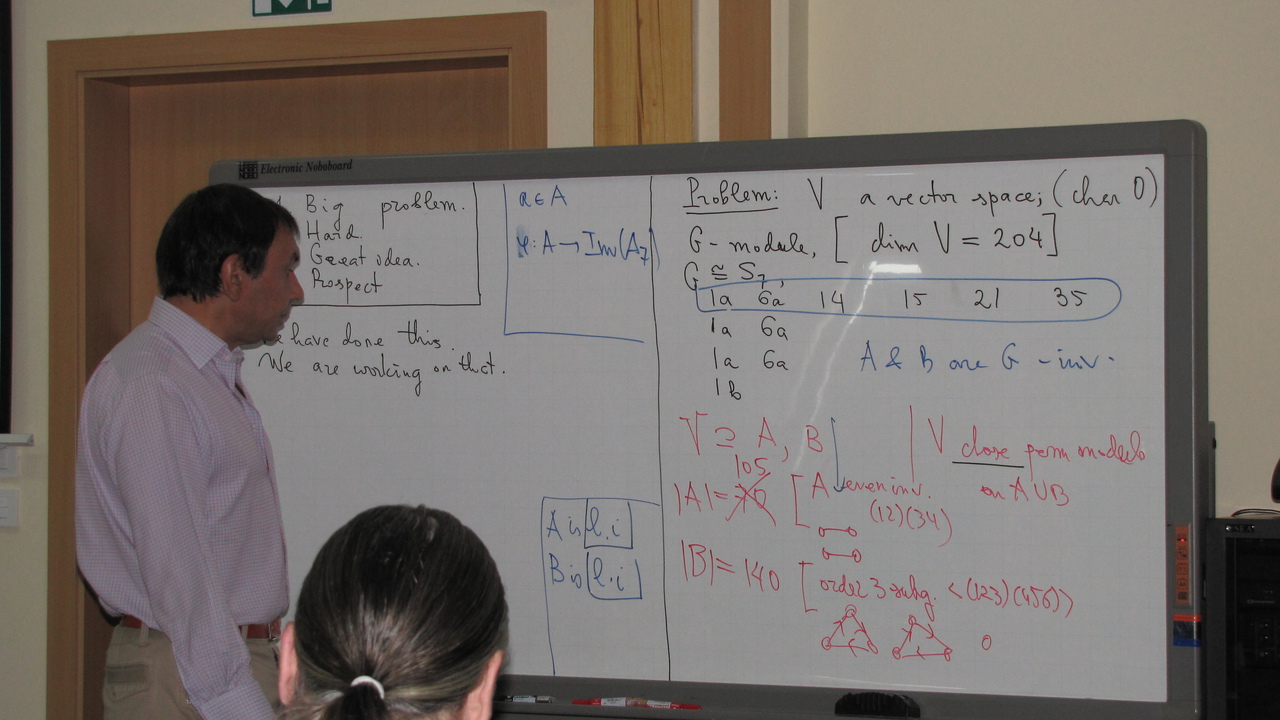 Electronic Noboboard
Big problem.
Hard.
Great idea.
Prospect
have done this.
We are working on that.
a ∈ A
φ: A → Inv(A7)
A is l.i
B is l.i
Problem: V a vector space; (char 0)
G-module, [dim V = 204]
G ≅ S7,
1a 6a 14 15 21 35
1a 6a
1a 6a
1b
A & B are G-inv.
V ⊇ A, B
V close perm modulo
on A ∪ B
105
|A| =
[A even inv.
(12)(34)
|B| = 140 [order 3 subg. <(123)(456)>